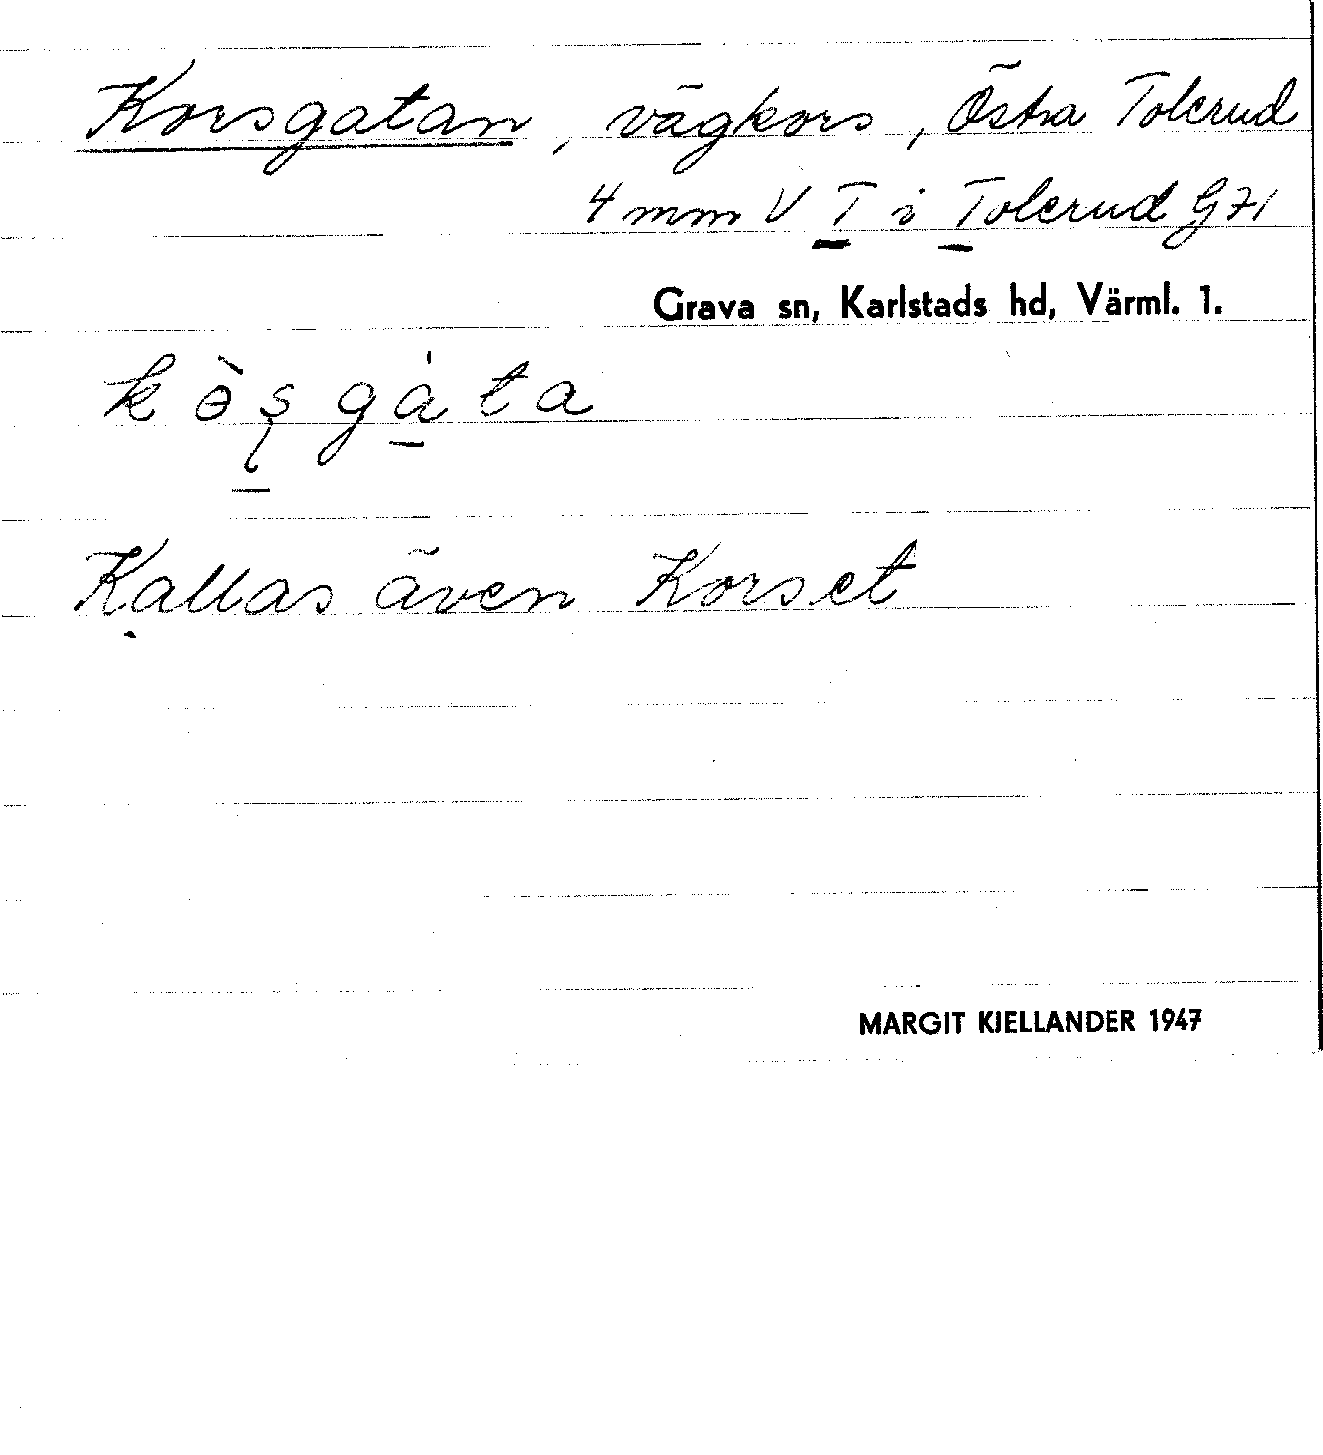 Korsgatan, vägkors, Östra Tolerud
4 mm V T i Tolerud G 71
Grava sn, Karlstads hd, Värml. 1.
kə̀ʂgáta
Kallas även Korset
MARGIT KJELLANDER 1947